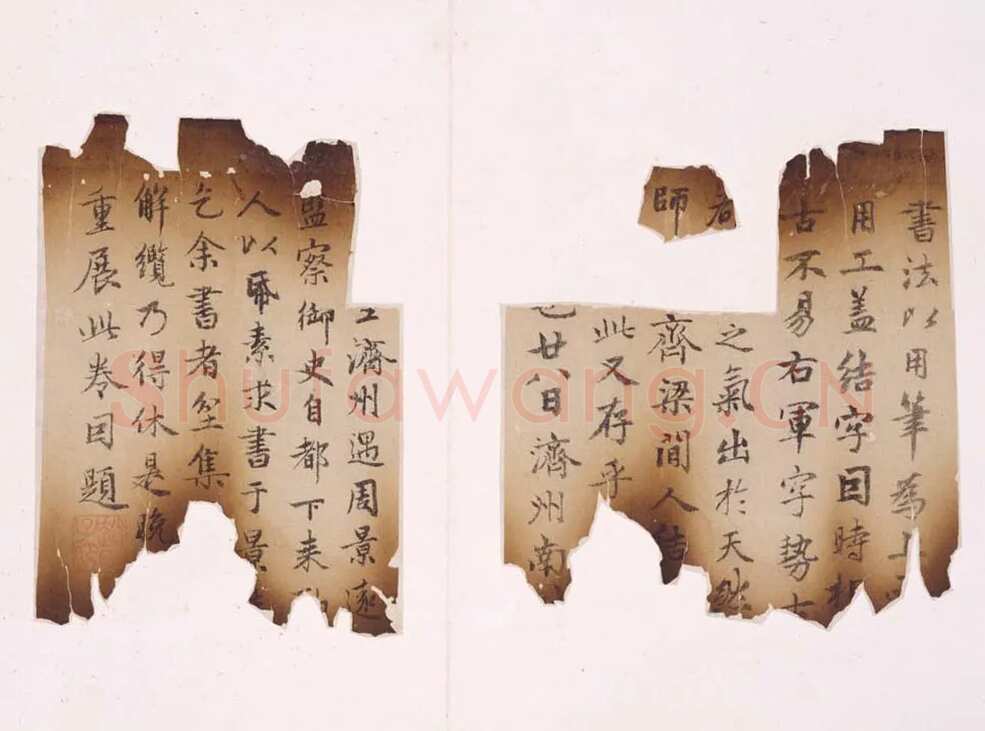 書法以用筆為上
用工盖結字因時相
古不易右軍字勢古
者 之氣出於天然
師 齊梁間人結
此又存乎
廿八日濟州南
濟州遇周景遠
監察御史自都下来
人以帋素求書于景
乞余書者坌集
解纜乃得休是晚
重展此卷因題
Shufawang.CN